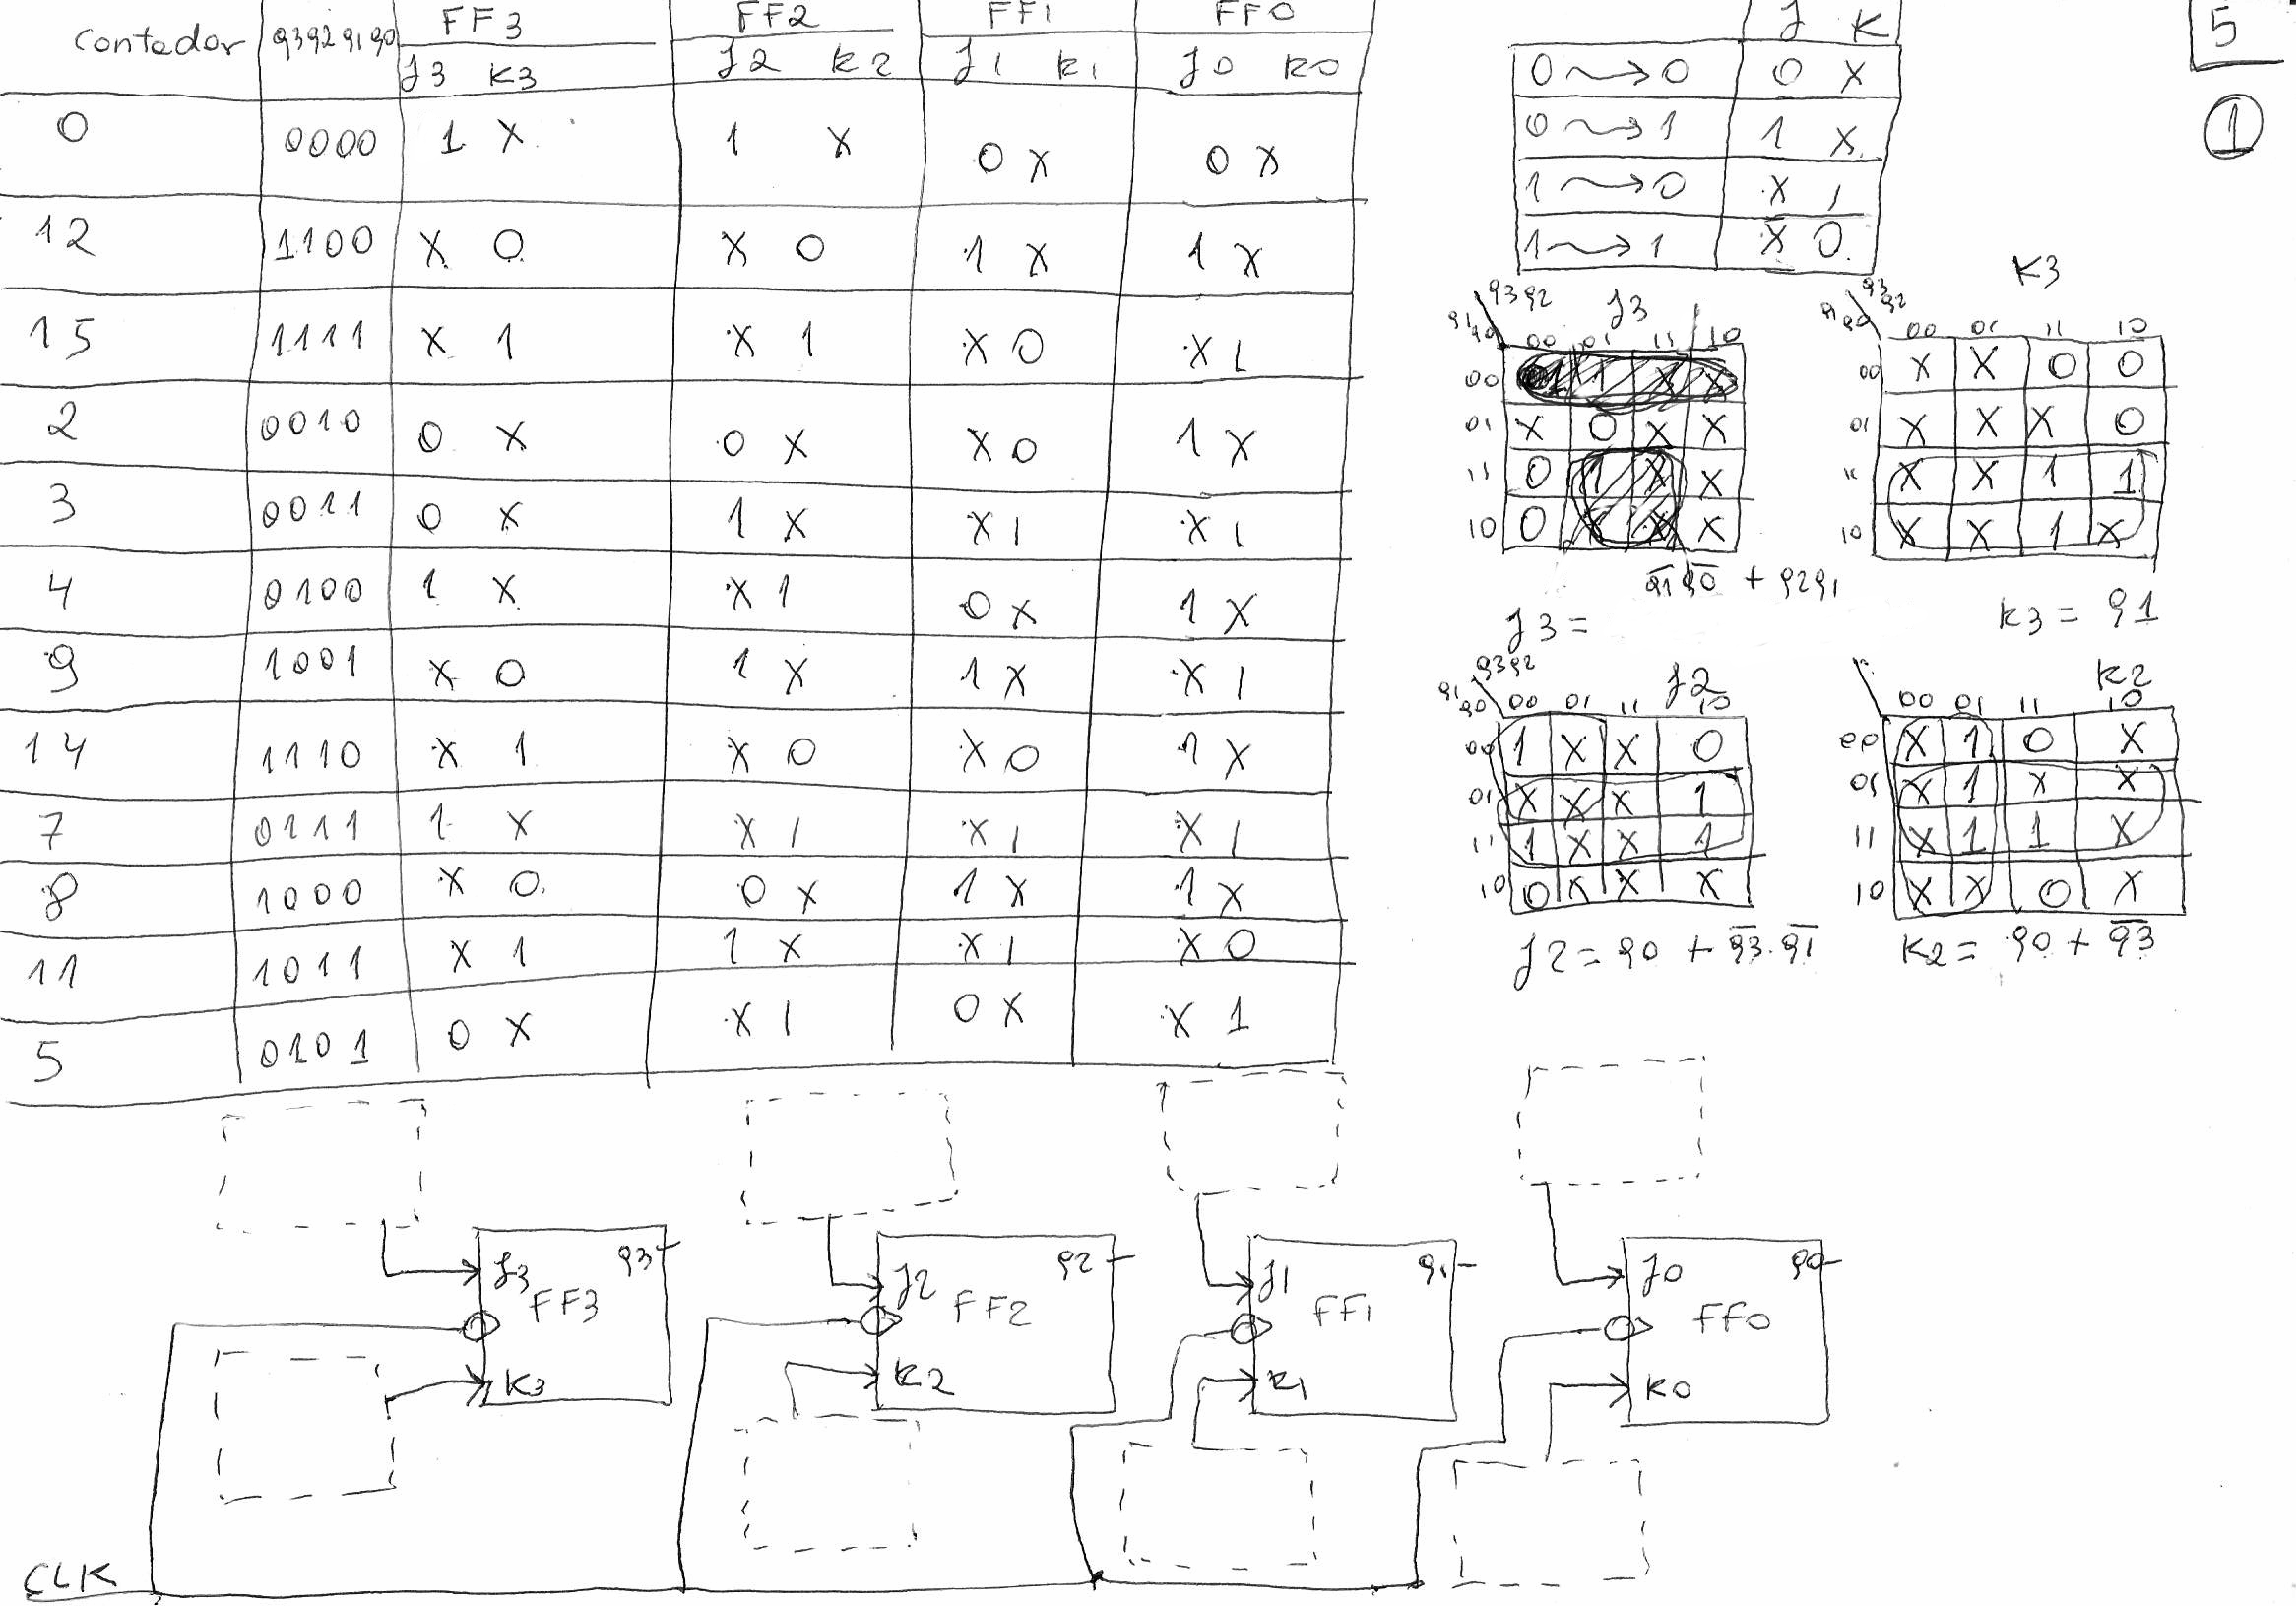 contador q3q2q1q0 FF3 FF2 FF1 FF0
J3 K3 J2 K2 J1 K1 J0 K0
0 0000 1 X 1 X 0 X 0 X
12 1100 X 0 X 0 1 X 1 X
15 1111 X 1 X 1 X 0 X 1
2 0010 0 X 0 X X 0 1 X
3 0011 0 X 1 X X 1 X 1
4 0100 1 X X 1 0 X 1 X
9 1001 X 0 1 X 1 X X 1
14 1110 X 1 X 0 X 0 1 X
7 0111 1 X X 1 X 1 X 1
8 1000 X 0 0 X 1 X 1 X
11 1011 X 1 1 X X 1 X 0
5 0101 0 X X 1 0 X X 1
J K
0 → 0 0 X
0 → 1 1 X
1 → 0 X 1
1 → 1 X 0
5
1
J3
q3q2
q1q0
00 01 11 10
00 1 X X
01 X 0 X X
11 0 1 X X
10 0 X X X
J3 = q̅1̅ q̅0̅ + q2q1
K3
q3q2
q1q0
00 01 11 10
00 X X 0 0
01 X X X 0
11 X X 1 1
10 X X 1 X
K3 = q1
J2
q3q2
q1q0
00 01 11 10
00 1 X X 0
01 X X X 1
11 1 X X 1
10 0 X X X
J2 = q0 + q̅3̅.q̅1̅
K2
00 01 11 10
00 X 1 0 X
01 X 1 X X
11 X 1 1 X
10 X X 0 X
K2 = q0 + q̅3̅
J3 q3 J2 q2 J1 q1 J0 q0
FF3 FF2 FF1 FF0
K3 K2 K1 K0
CLK